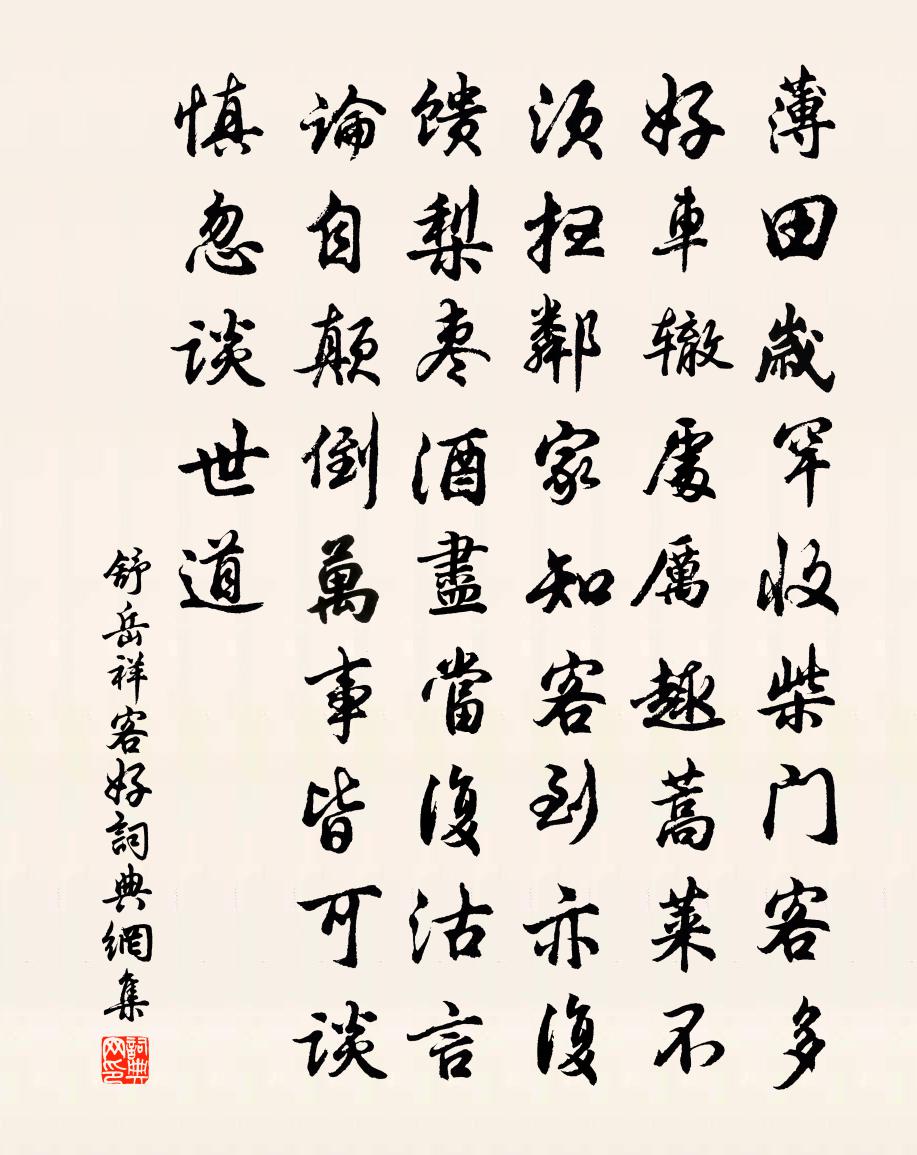 薄田歲罕收柴门客多
好車辙處厲趣蒿莱不
须扫鄰家知客到亦復
馈梨枣酒盡當復沽言
論自顛倒萬事皆可谈
慎忽谈世道
舒岳祥客好詞典網集
詞典网印